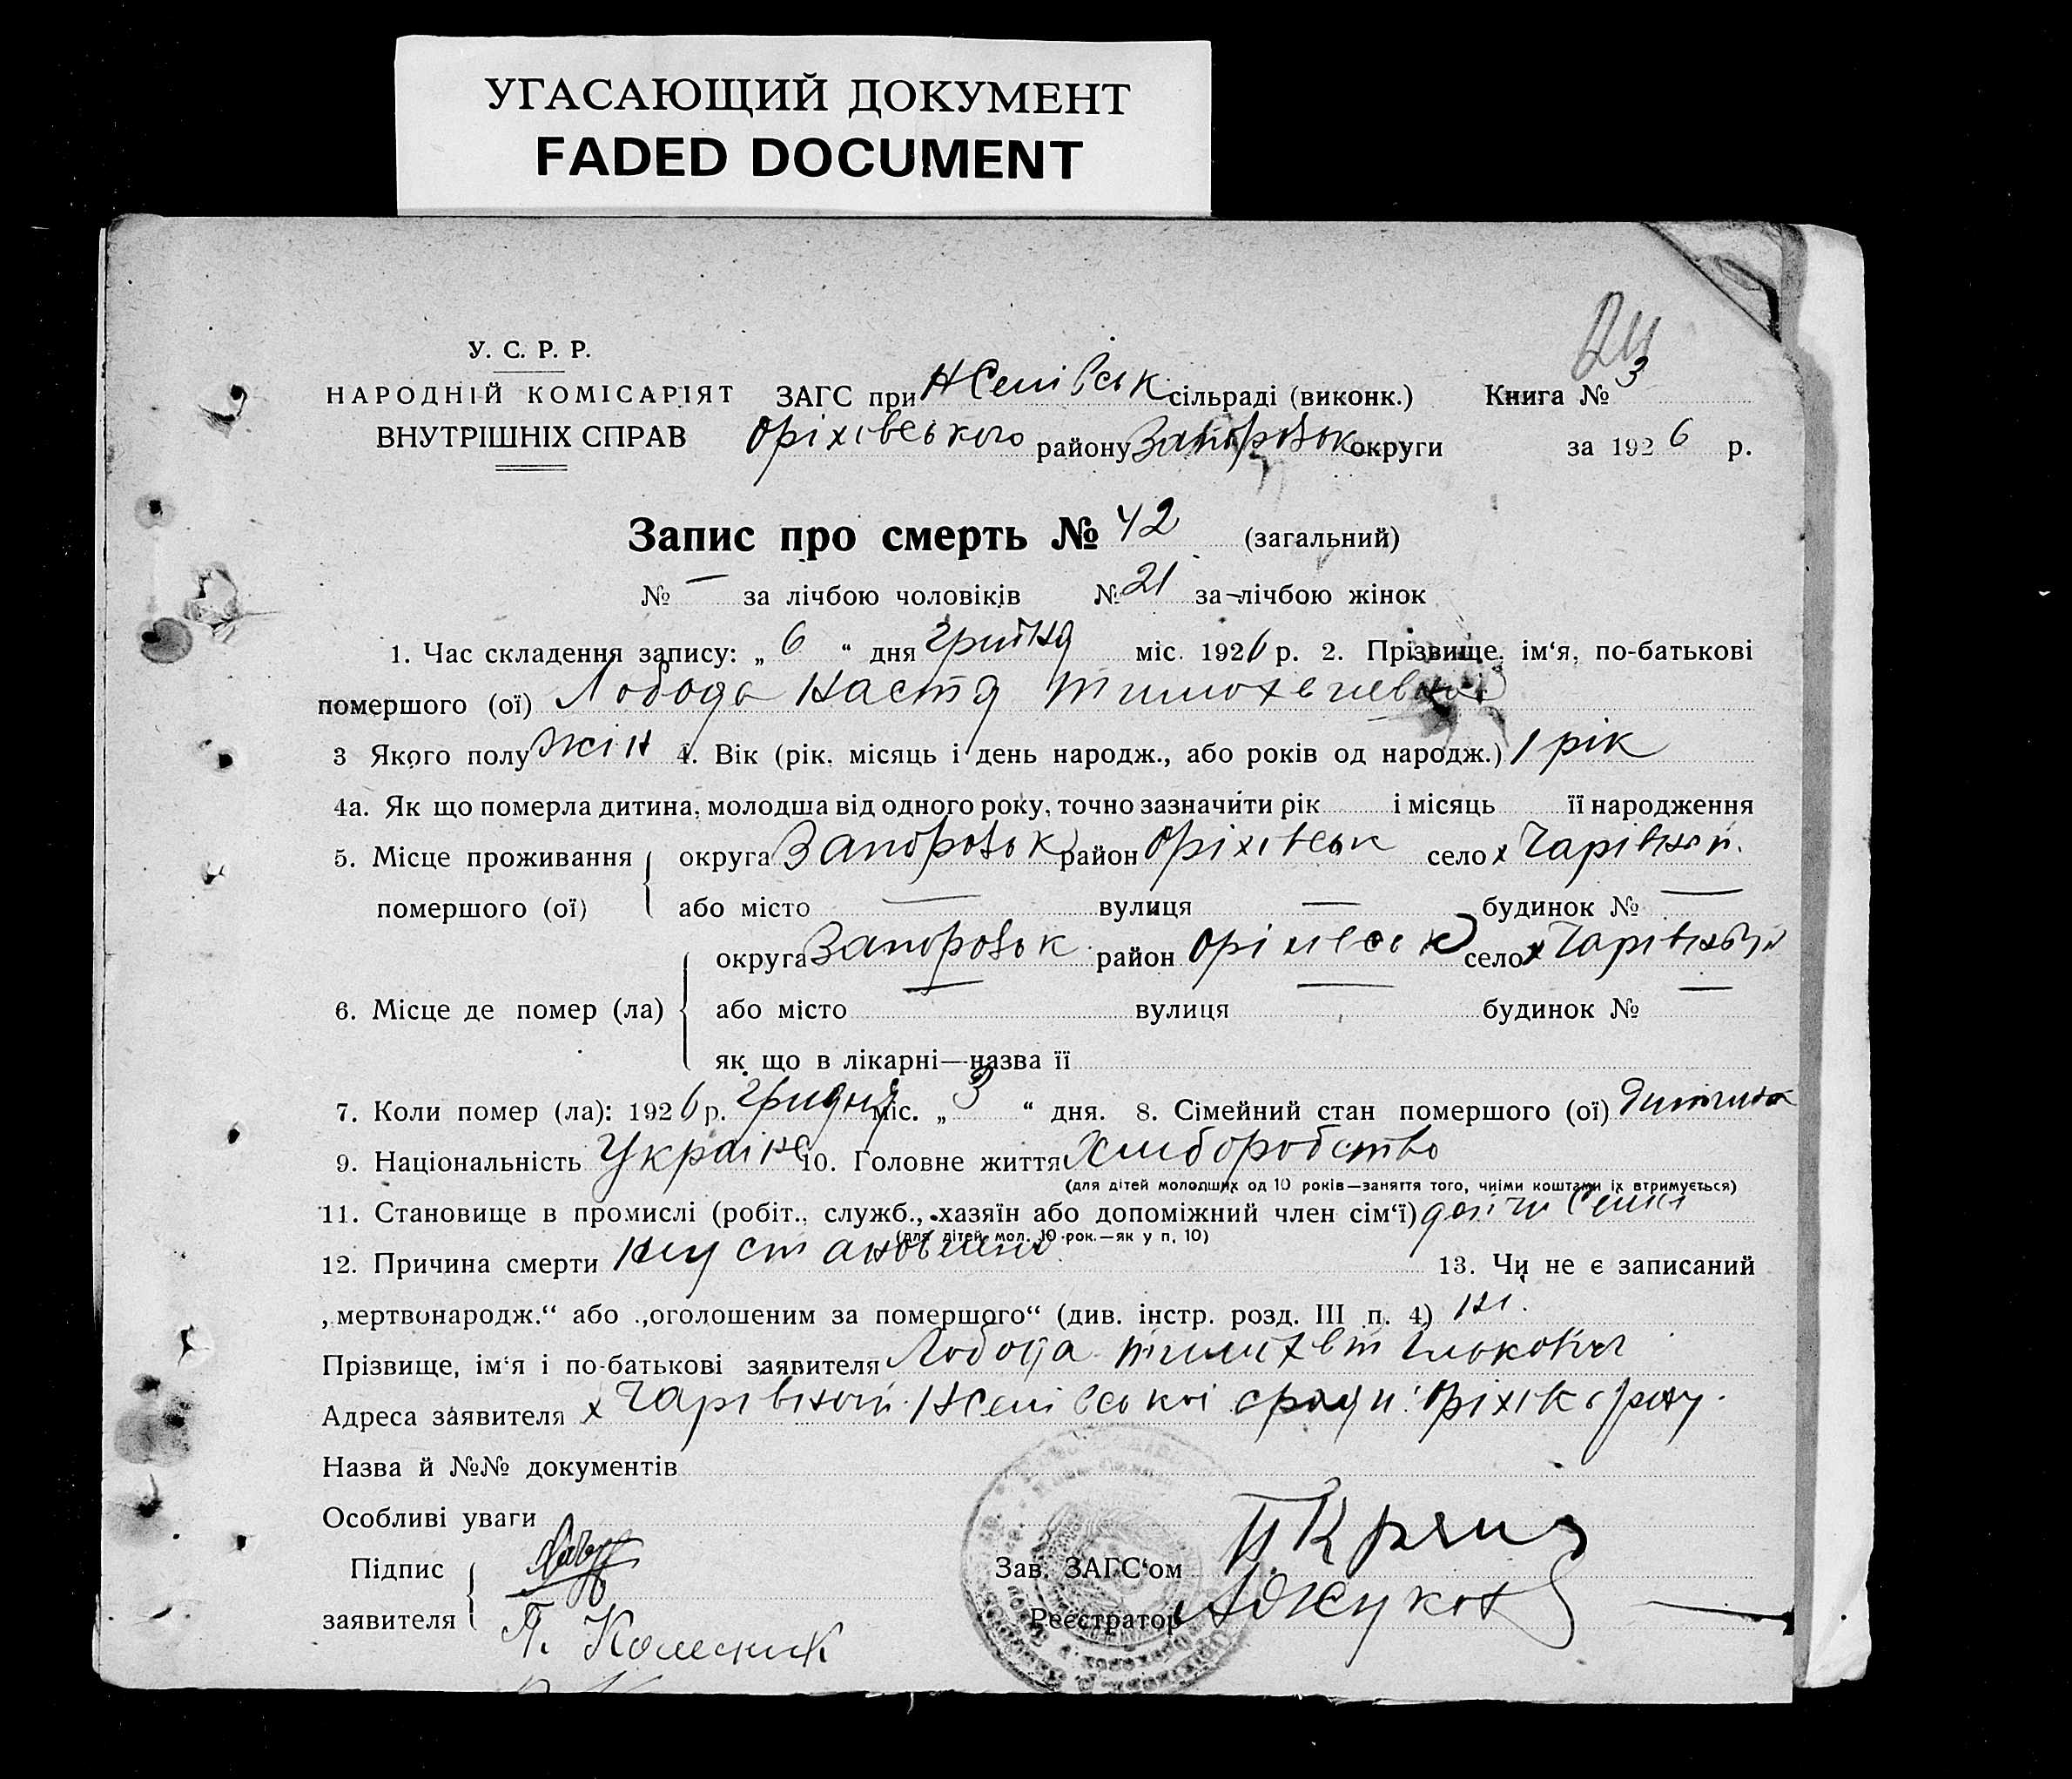 УГАСАЮЩИЙ ДОКУМЕНТ
FADED DOCUMENT
24
У. С. Р. Р.
НАРОДНІЙ КОМІСАРІЯТ
ВНУТРІШНІХ СПРАВ
ЗАГС при сільраді (виконк.) Книга № 3
Оріхівського району Запорозьк округи за 1926 р.
Запис про смерть № 42 (загальний)
№ — за лічбою чоловіків № 21 за лічбою жінок
1. Час складення запису: „ 6 “ дня міс. 1926 р. 2. Прізвище, ім‘я, по-батькові
помершого (ої) Лобода Настя
3 Якого полу жін 4. Вік (рік, місяць і день народж., або років од народж.) 1 рік
4а. Як що померла дитина, молодша від одного року, точно зазначити рік і місяць її народження
5. Місце проживання округа Запорозьк район Оріхівськ село х Чарівний
помершого (ої) або місто — вулиця — будинок № —
округа Запорозьк район Оріхівськ село х
6. Місце де помер (ла) або місто — вулиця — будинок № —
як що в лікарні—назва її
7. Коли помер (ла): 1926 р. грудня міс. „ 3 “ дня. 8. Сімейний стан помершого (ої) дитина
9. Національність Україн 10. Головне життя Хліборобство
(для дітей молодших од 10 років—заняття того, чиїми коштами їх втримується)
11. Становище в промислі (робіт., служб., хазяїн або допоміжний член сім‘ї)
(для дітей мол. 10 рок.—як у п. 10)
12. Причина смерти 13. Чи не є записаний
„мертвонародж.“ або „оголошеним за помершого“ (див. інстр. розд. III п. 4) ні.
Прізвище, ім‘я і по-батькові заявителя Лобода
Адреса заявителя х Чарівний
Назва й №№ документів
Особливі уваги
Підпис
заявителя
П. Колесник
Зав. ЗАГС‘ом
Реєстратор